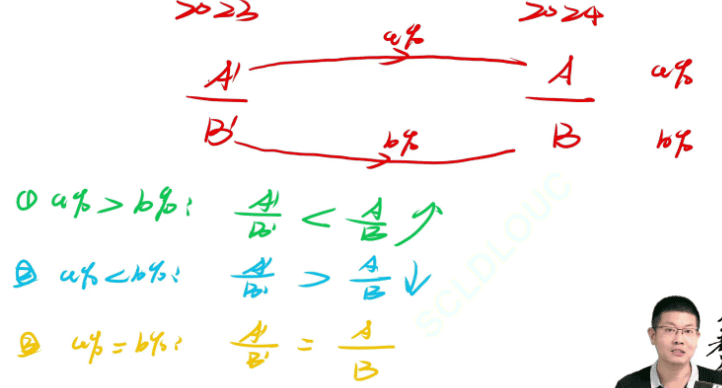 2023 2024
A' a% A a%
B' b% B b%
① a%>b%: A'/B' < A/B ↗
② a%<b%: A'/B' > A/B ↓
③ a%=b%: A'/B' = A/B
SCLDLOUC
考